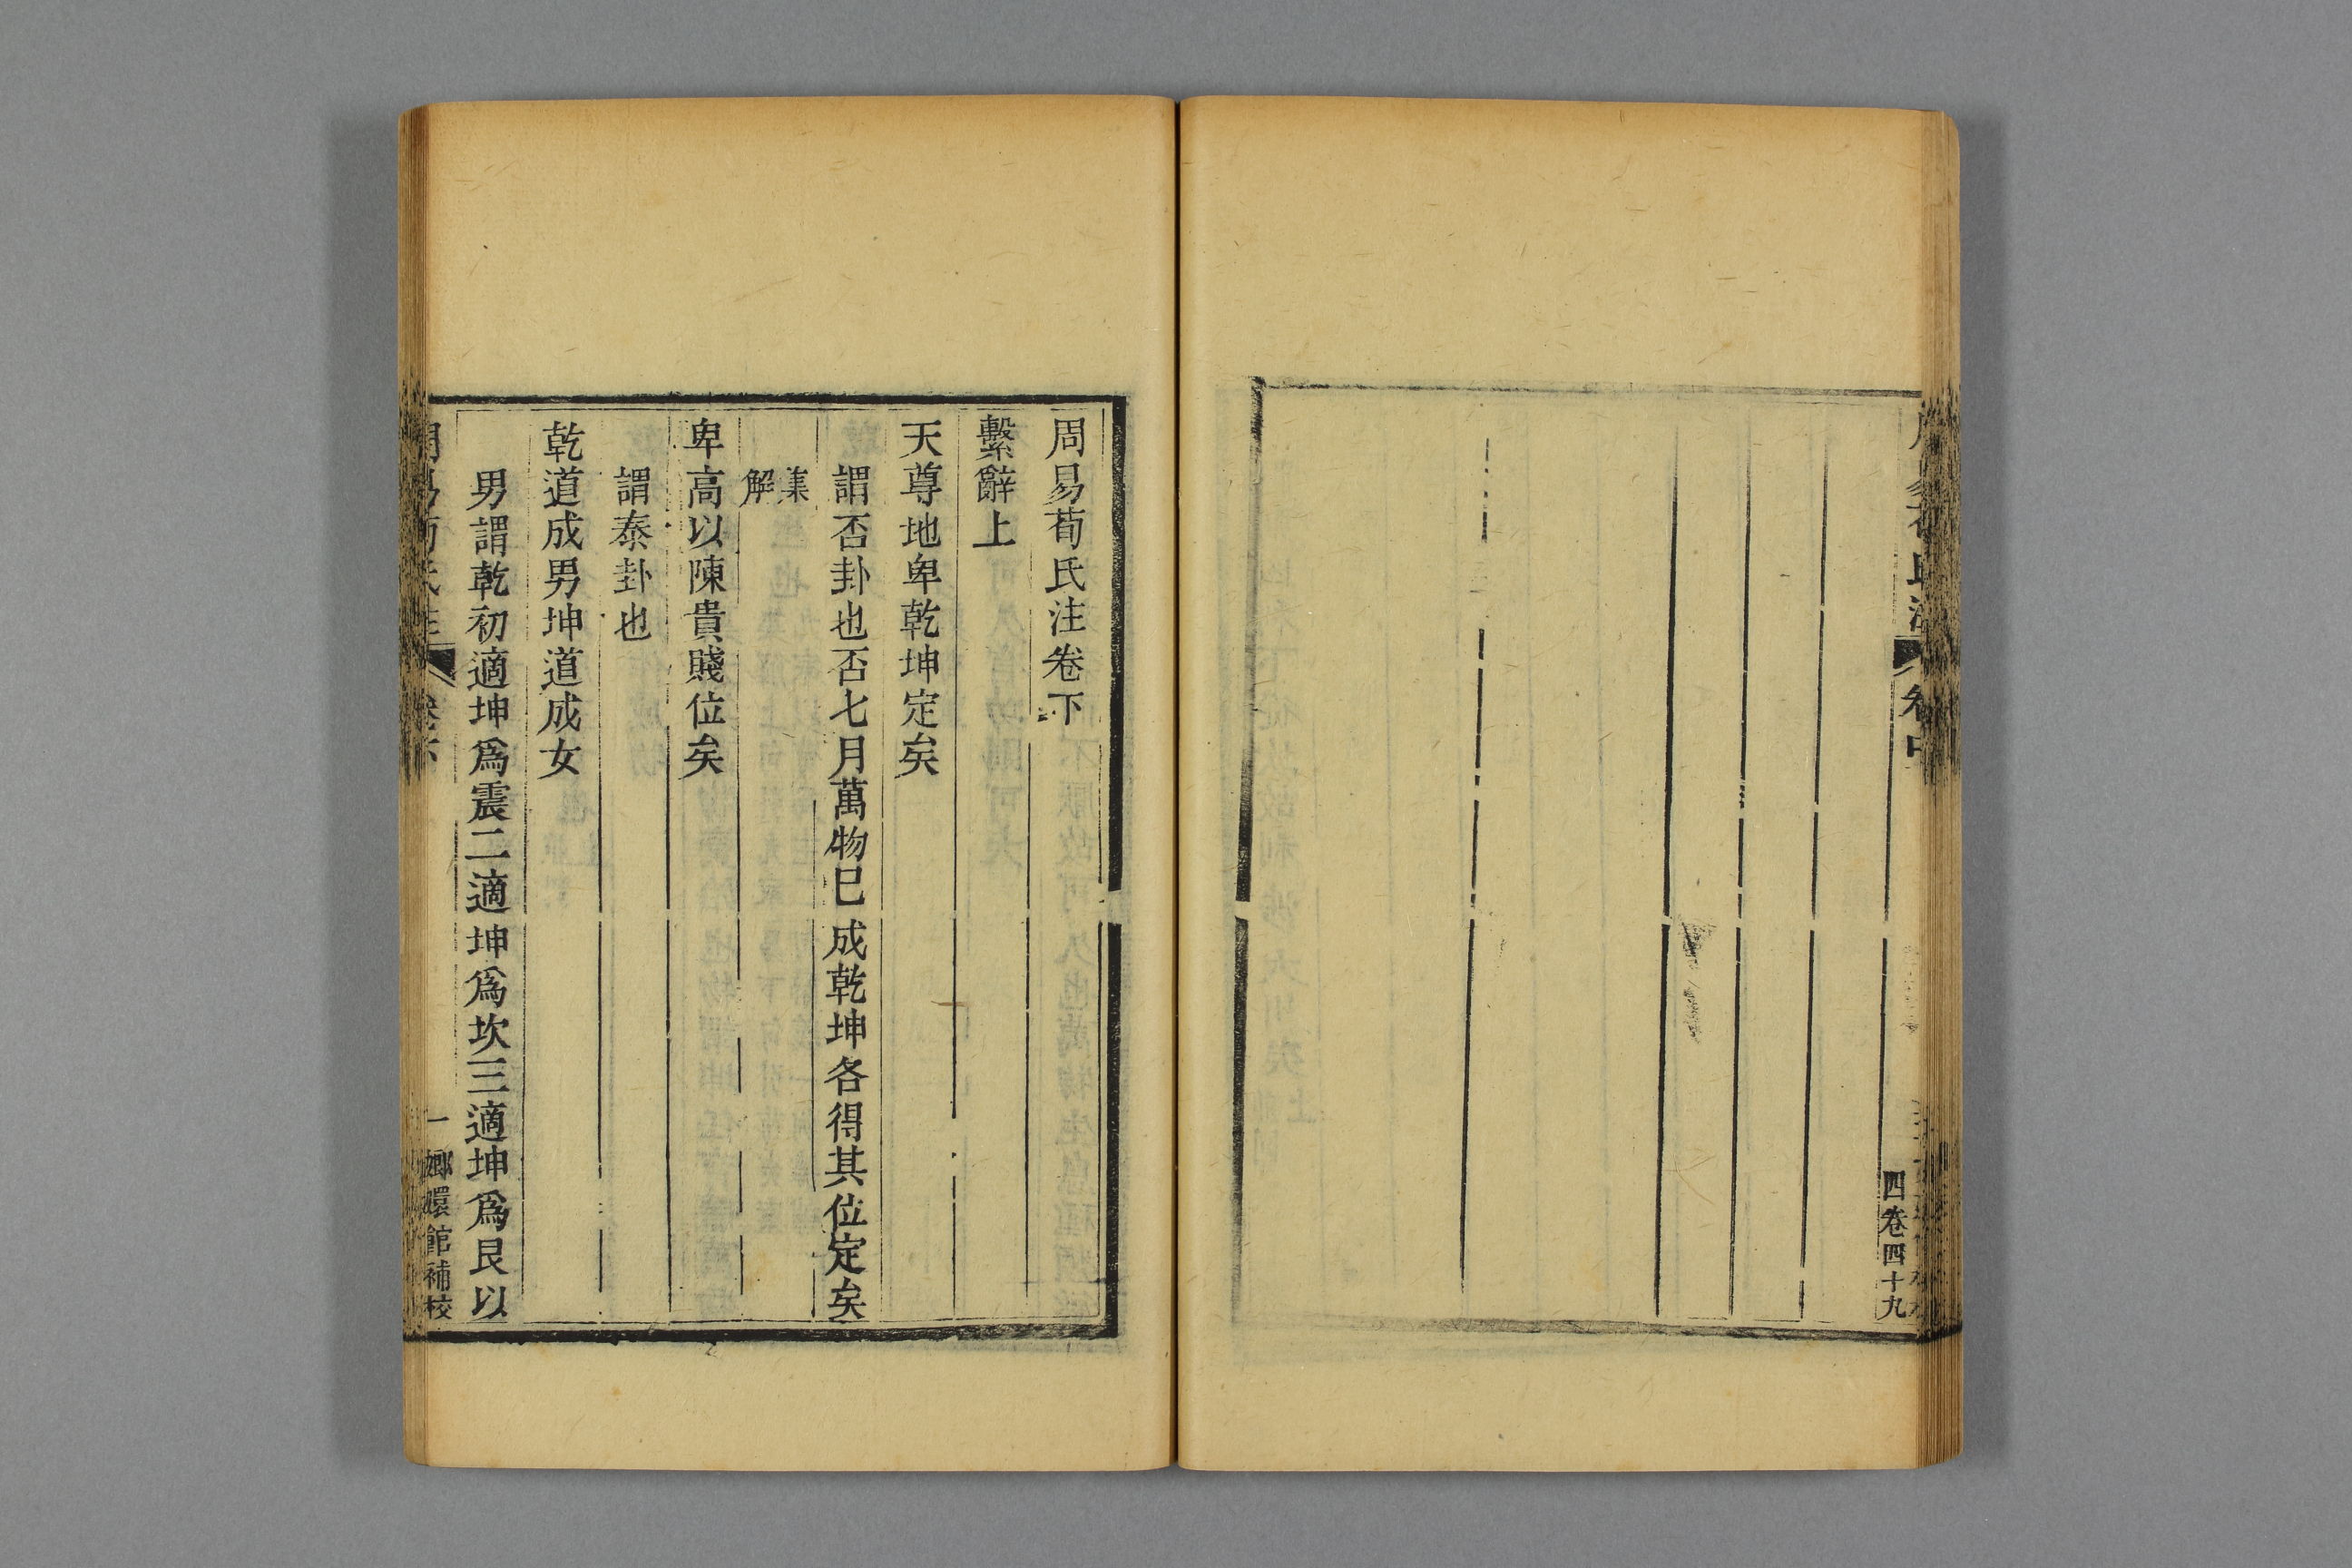 四卷四十九
周易荀氏注卷下
繫辭上
天尊地卑乾坤定矣
謂否卦也否七月萬物已成乾坤各得其位定矣
集解
卑高以陳貴賤位矣
謂泰卦也
乾道成男坤道成女
男謂乾初適坤爲震二適坤爲坎三適坤爲艮以
一
嫏嬛館補校